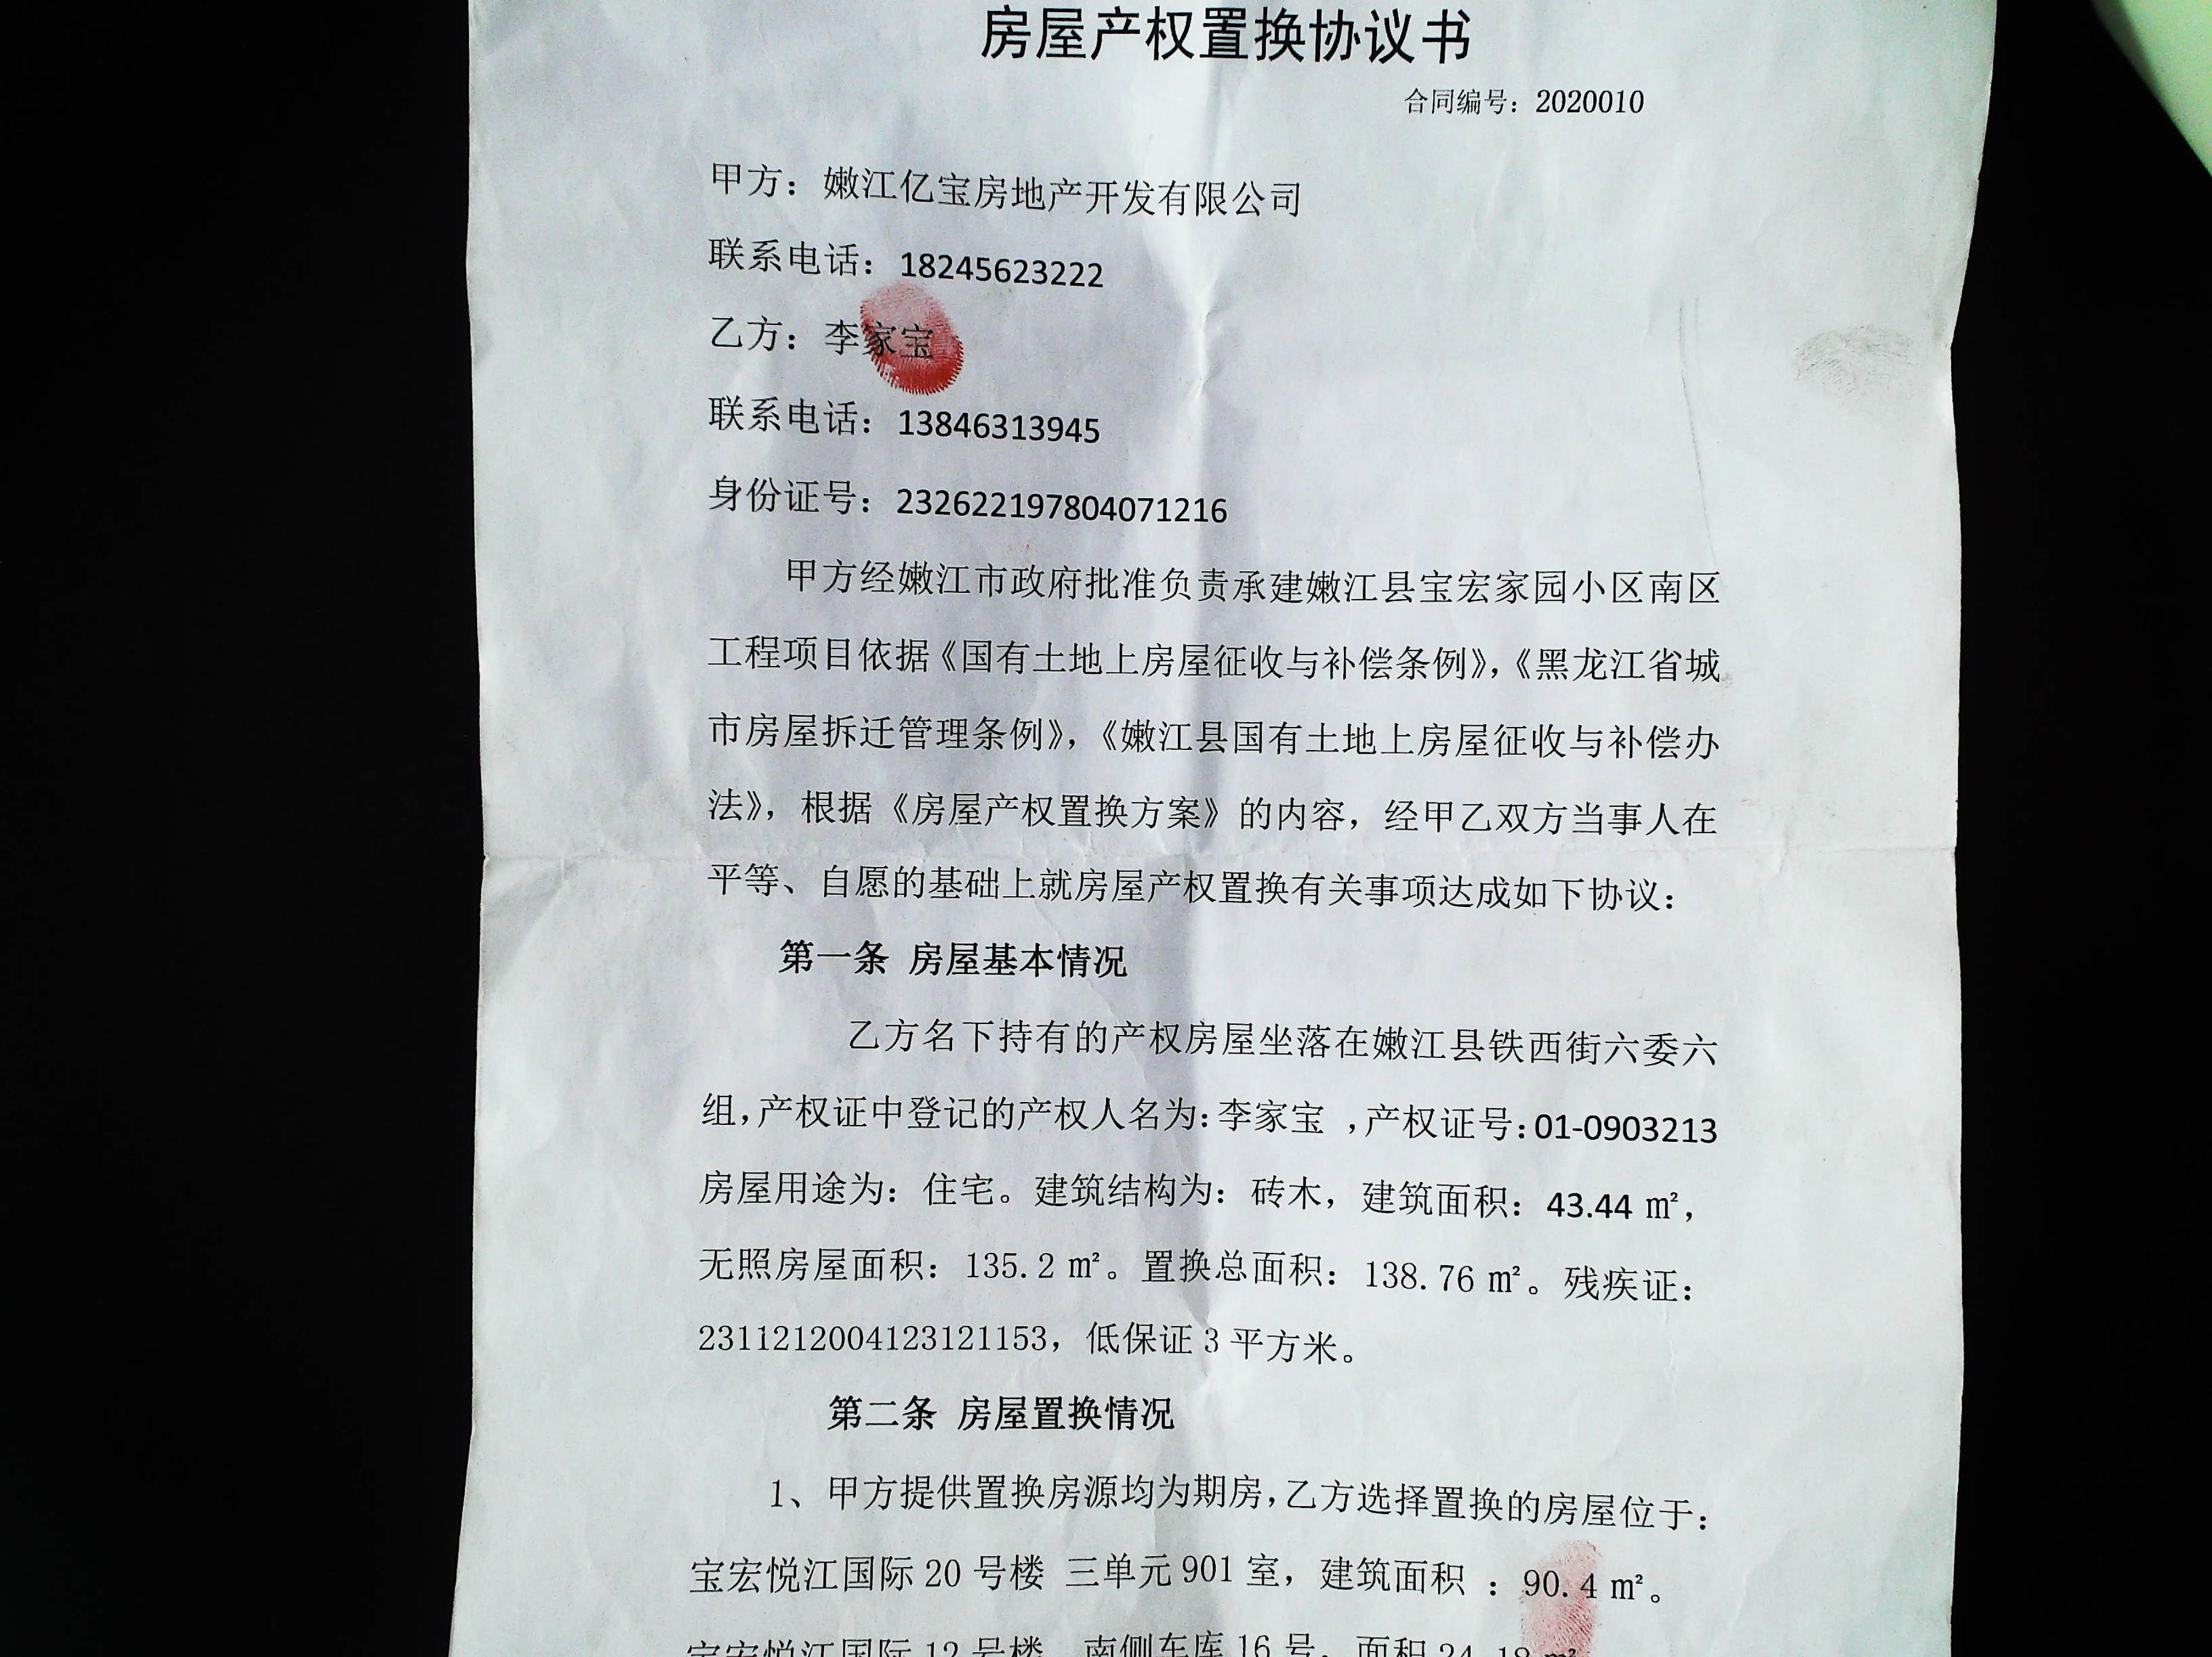 房屋产权置换协议书
合同编号：2020010
甲方：嫩江亿宝房地产开发有限公司
联系电话：18245623222
乙方：李家宝
联系电话：13846313945
身份证号：232622197804071216
甲方经嫩江市政府批准负责承建嫩江县宝宏家园小区南区
工程项目依据《国有土地上房屋征收与补偿条例》，《黑龙江省城
市房屋拆迁管理条例》，《嫩江县国有土地上房屋征收与补偿办
法》，根据《房屋产权置换方案》的内容，经甲乙双方当事人在
平等、自愿的基础上就房屋产权置换有关事项达成如下协议：
第一条 房屋基本情况
乙方名下持有的产权房屋坐落在嫩江县铁西街六委六
组，产权证中登记的产权人名为：李家宝 ，产权证号：01-0903213
房屋用途为：住宅。建筑结构为：砖木，建筑面积：43.44 ㎡，
无照房屋面积：135.2 ㎡。置换总面积：138.76 ㎡。残疾证：
2311212004123121153，低保证 3 平方米。
第二条 房屋置换情况
1、甲方提供置换房源均为期房，乙方选择置换的房屋位于：
宝宏悦江国际 20 号楼 三单元 901 室，建筑面积 ：90.4 ㎡。
宝宏悦江国际 12 号楼 南侧车库 16 号，面积 24.18 ㎡